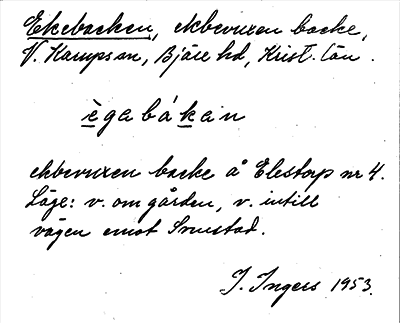 Ekebacken, ekbevuxen backe,
V. Karups sn, Bjäre hd, Krist. län.
ègabákan
ekbevuxen backe å Elestorp nr 4.
Läge: v. om gården, v. intill
vägen emot
I. Ingers 1953.